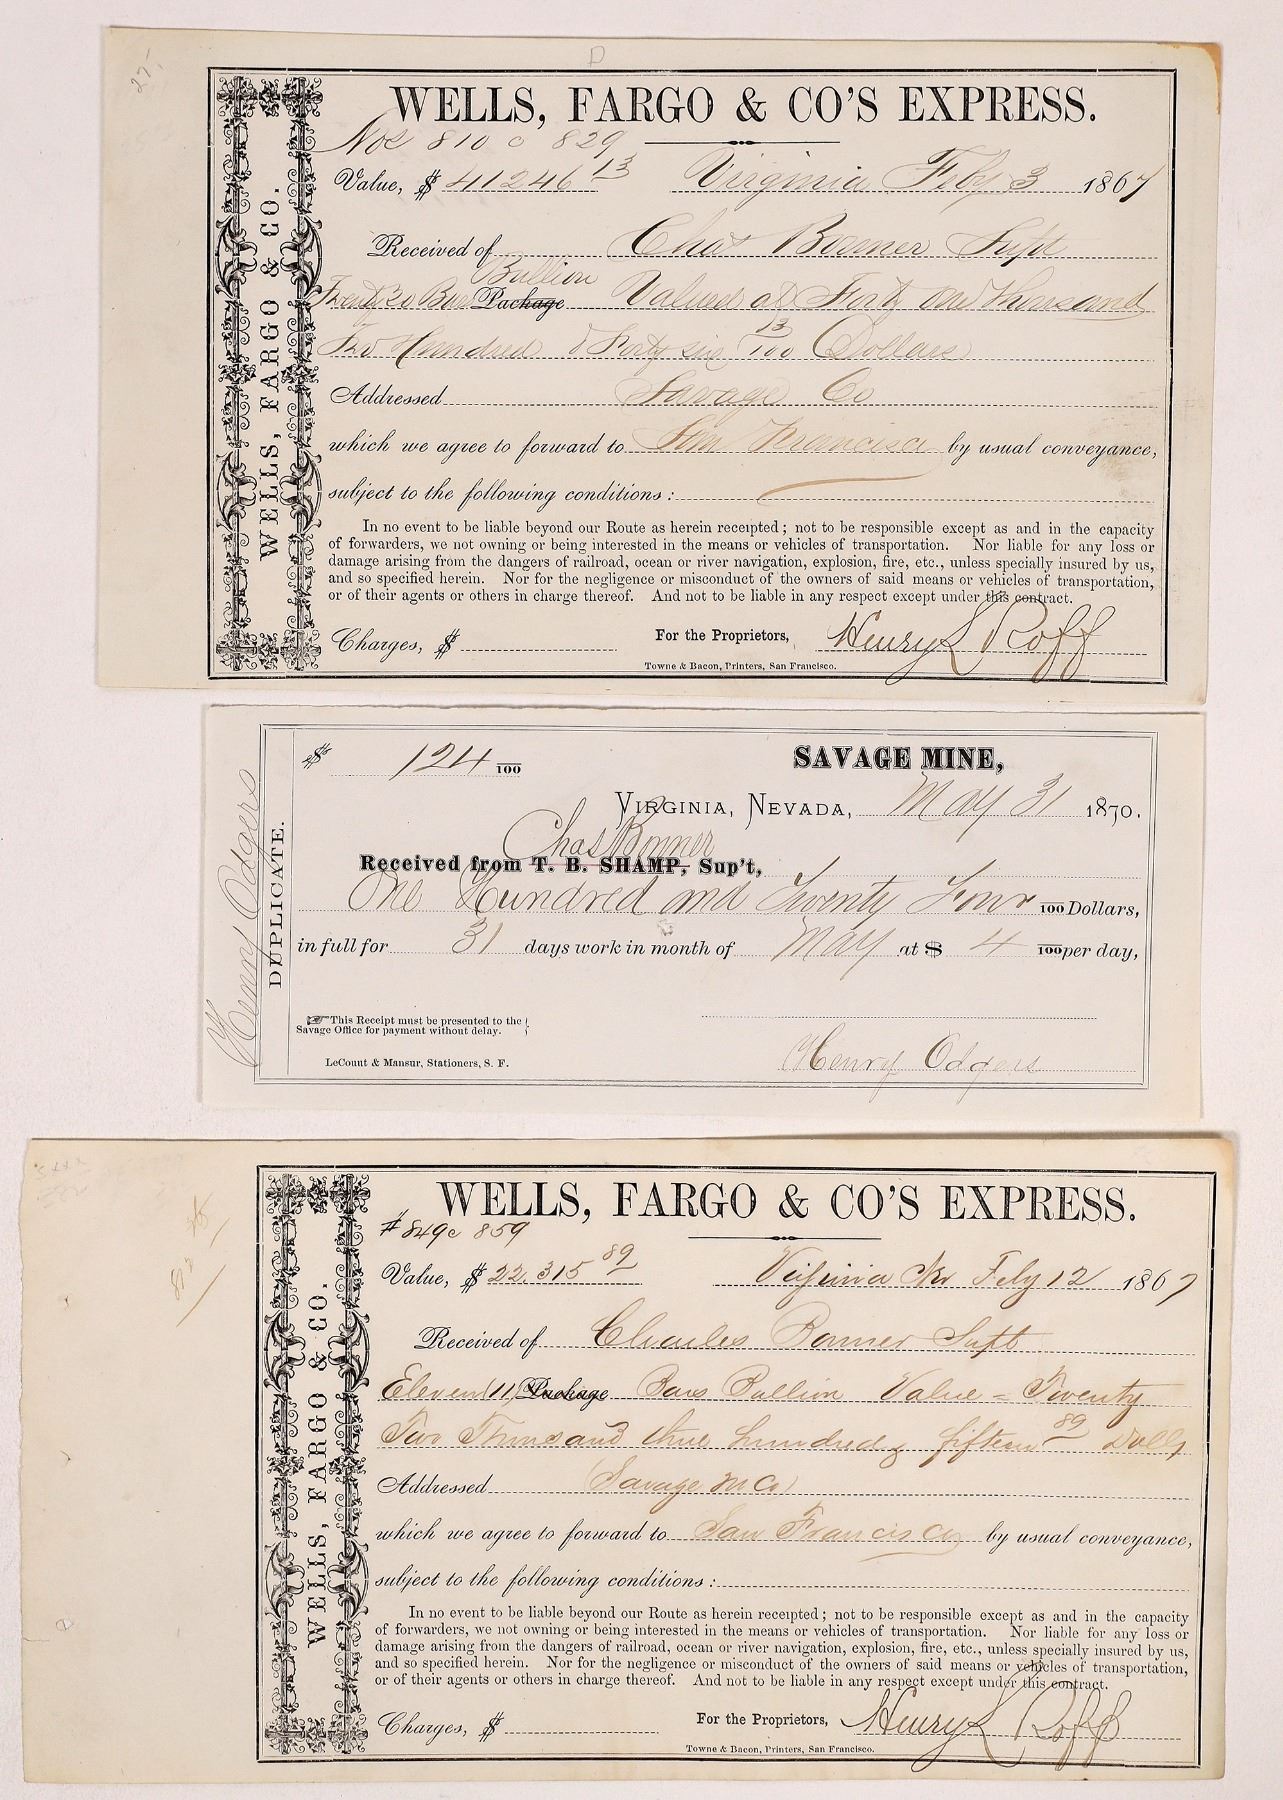 27.
P
WELLS, FARGO & CO'S EXPRESS.
WELLS, FARGO & CO.
Nos 810 @ 829
Value, $ 41246 13 Virginia Feby 3 1867
Received of Chas Bonner Supt
Bullion
Twenty 20 Bars Package Valued at Forty one thousand
Two Hundred & Forty six 13/100 Dollars
Addressed Savage Co
which we agree to forward to San Francisco by usual conveyance,
subject to the following conditions:
In no event to be liable beyond our Route as herein receipted; not to be responsible except as and in the capacity
of forwarders, we not owning or being interested in the means or vehicles of transportation. Nor liable for any loss or
damage arising from the dangers of railroad, ocean or river navigation, explosion, fire, etc., unless specially insured by us,
and so specified herein. Nor for the negligence or misconduct of the owners of said means or vehicles of transportation,
or of their agents or others in charge thereof. And not to be liable in any respect except under this contract.
Charges, $ For the Proprietors, Henry L Roff
Towne & Bacon, Printers, San Francisco.
$ 124 /100 SAVAGE MINE,
VIRGINIA, NEVADA, May 31 1870.
Chas Bonner
Received from T. B. SHAMP, Sup't,
One Hundred and Twenty Four /100 Dollars,
in full for 31 days work in month of May at $ 4 /100 per day,
This Receipt must be presented to the
Savage Office for payment without delay.
LeCount & Mansur, Stationers, S. F.
Henry Odgers
DUPLICATE.
Henry Odgers
WELLS, FARGO & CO'S EXPRESS.
WELLS, FARGO & CO.
# 849 @ 859
Value, $ 22,315 89 Virginia Nev Feby 12 1867
Received of Charles Bonner Supt
Eleven (11) Package Bars Bullion Value = Twenty
Two Thousand three hundred & fifteen 89 Dolls
Addressed Savage M Co
which we agree to forward to San Francisco by usual conveyance,
subject to the following conditions:
In no event to be liable beyond our Route as herein receipted; not to be responsible except as and in the capacity
of forwarders, we not owning or being interested in the means or vehicles of transportation. Nor liable for any loss or
damage arising from the dangers of railroad, ocean or river navigation, explosion, fire, etc., unless specially insured by us,
and so specified herein. Nor for the negligence or misconduct of the owners of said means or vehicles of transportation,
or of their agents or others in charge thereof. And not to be liable in any respect except under this contract.
Charges, $ For the Proprietors, Henry L Roff
Towne & Bacon, Printers, San Francisco.